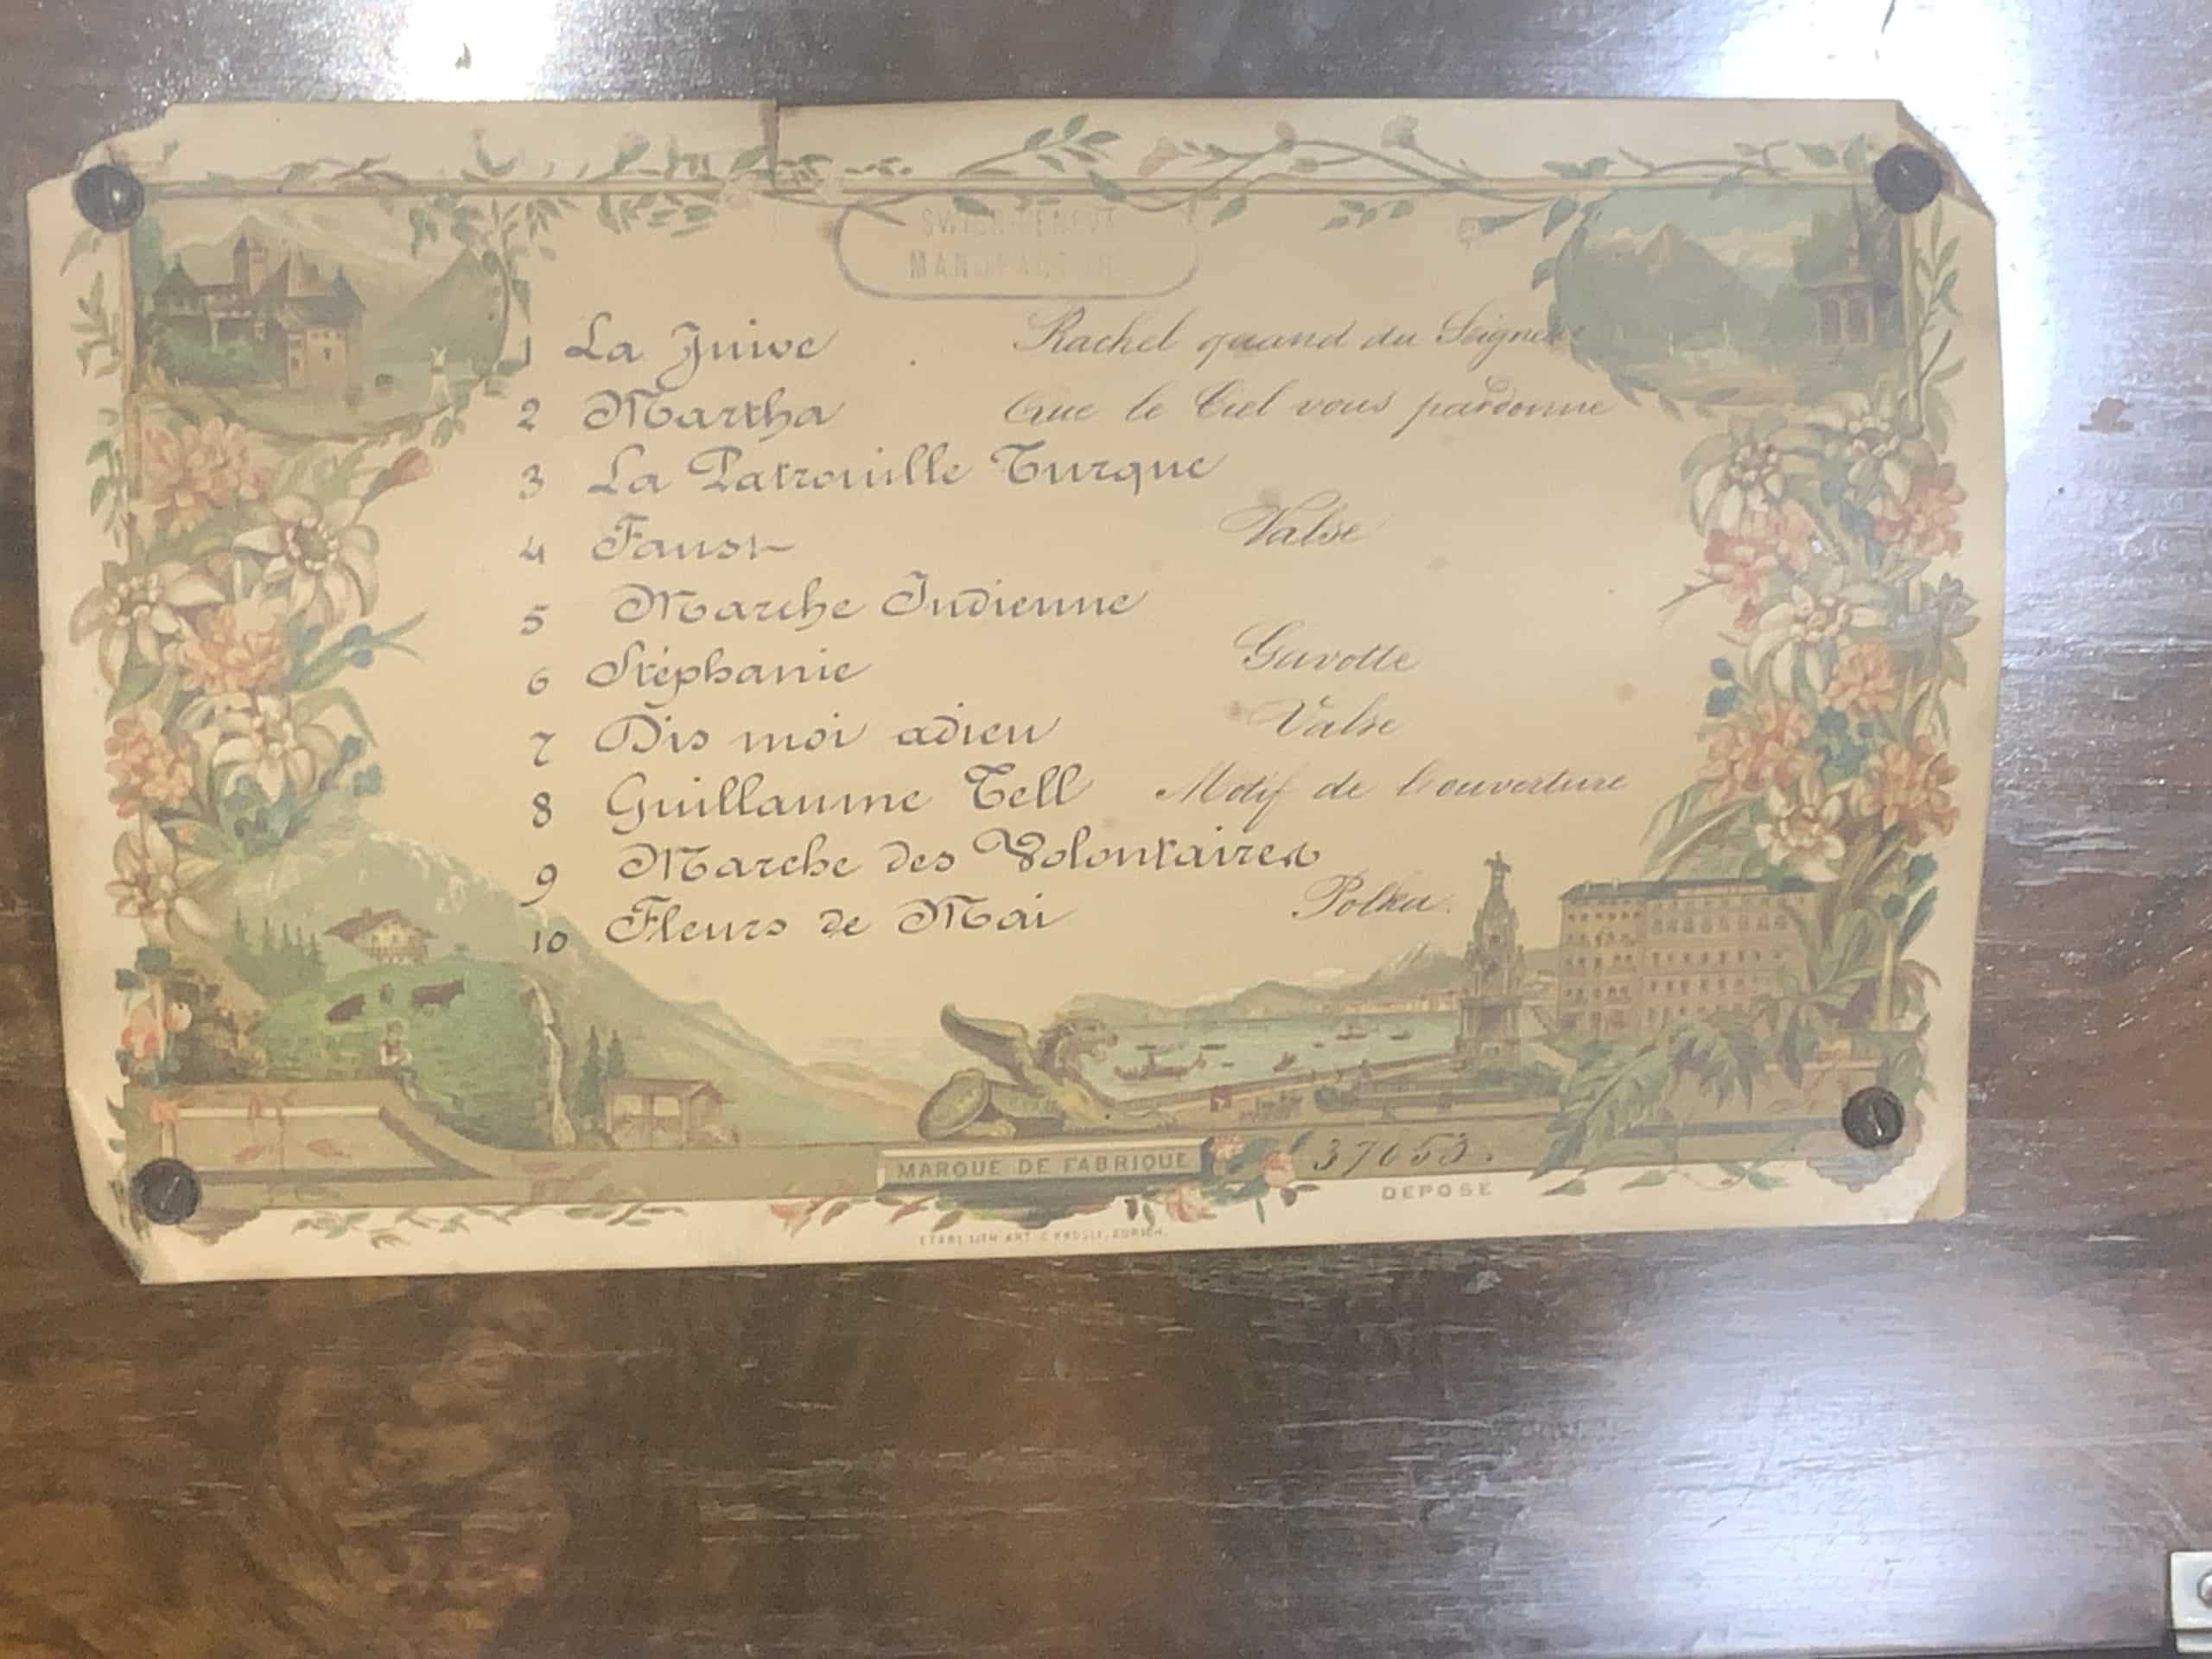 MANUFACTURE
1 La Juive Rachel quand du Seigneur
2 Martha Que le Ciel vous pardonne
3 La Patrouille Turque
4 Faust Valse
5 Marche Indienne
6 Stéphanie Gavotte
7 Dis moi adieu Valse
8 Guillaume Tell Motif de l'ouverture
9 Marche des Volontaires
10 Fleurs de Mai Polka.
MARQUE DE FABRIQUE
37653.
DEPOSE
ETABT LITH ART ZURICH.